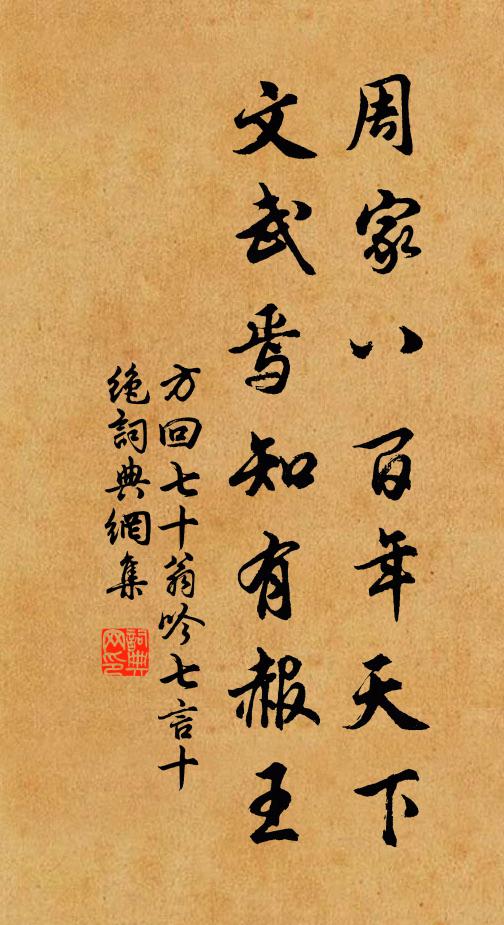 周家八百年天下
文武焉知有赧王
方回七十翁吟七言十
绝詞典網集
詞典网印